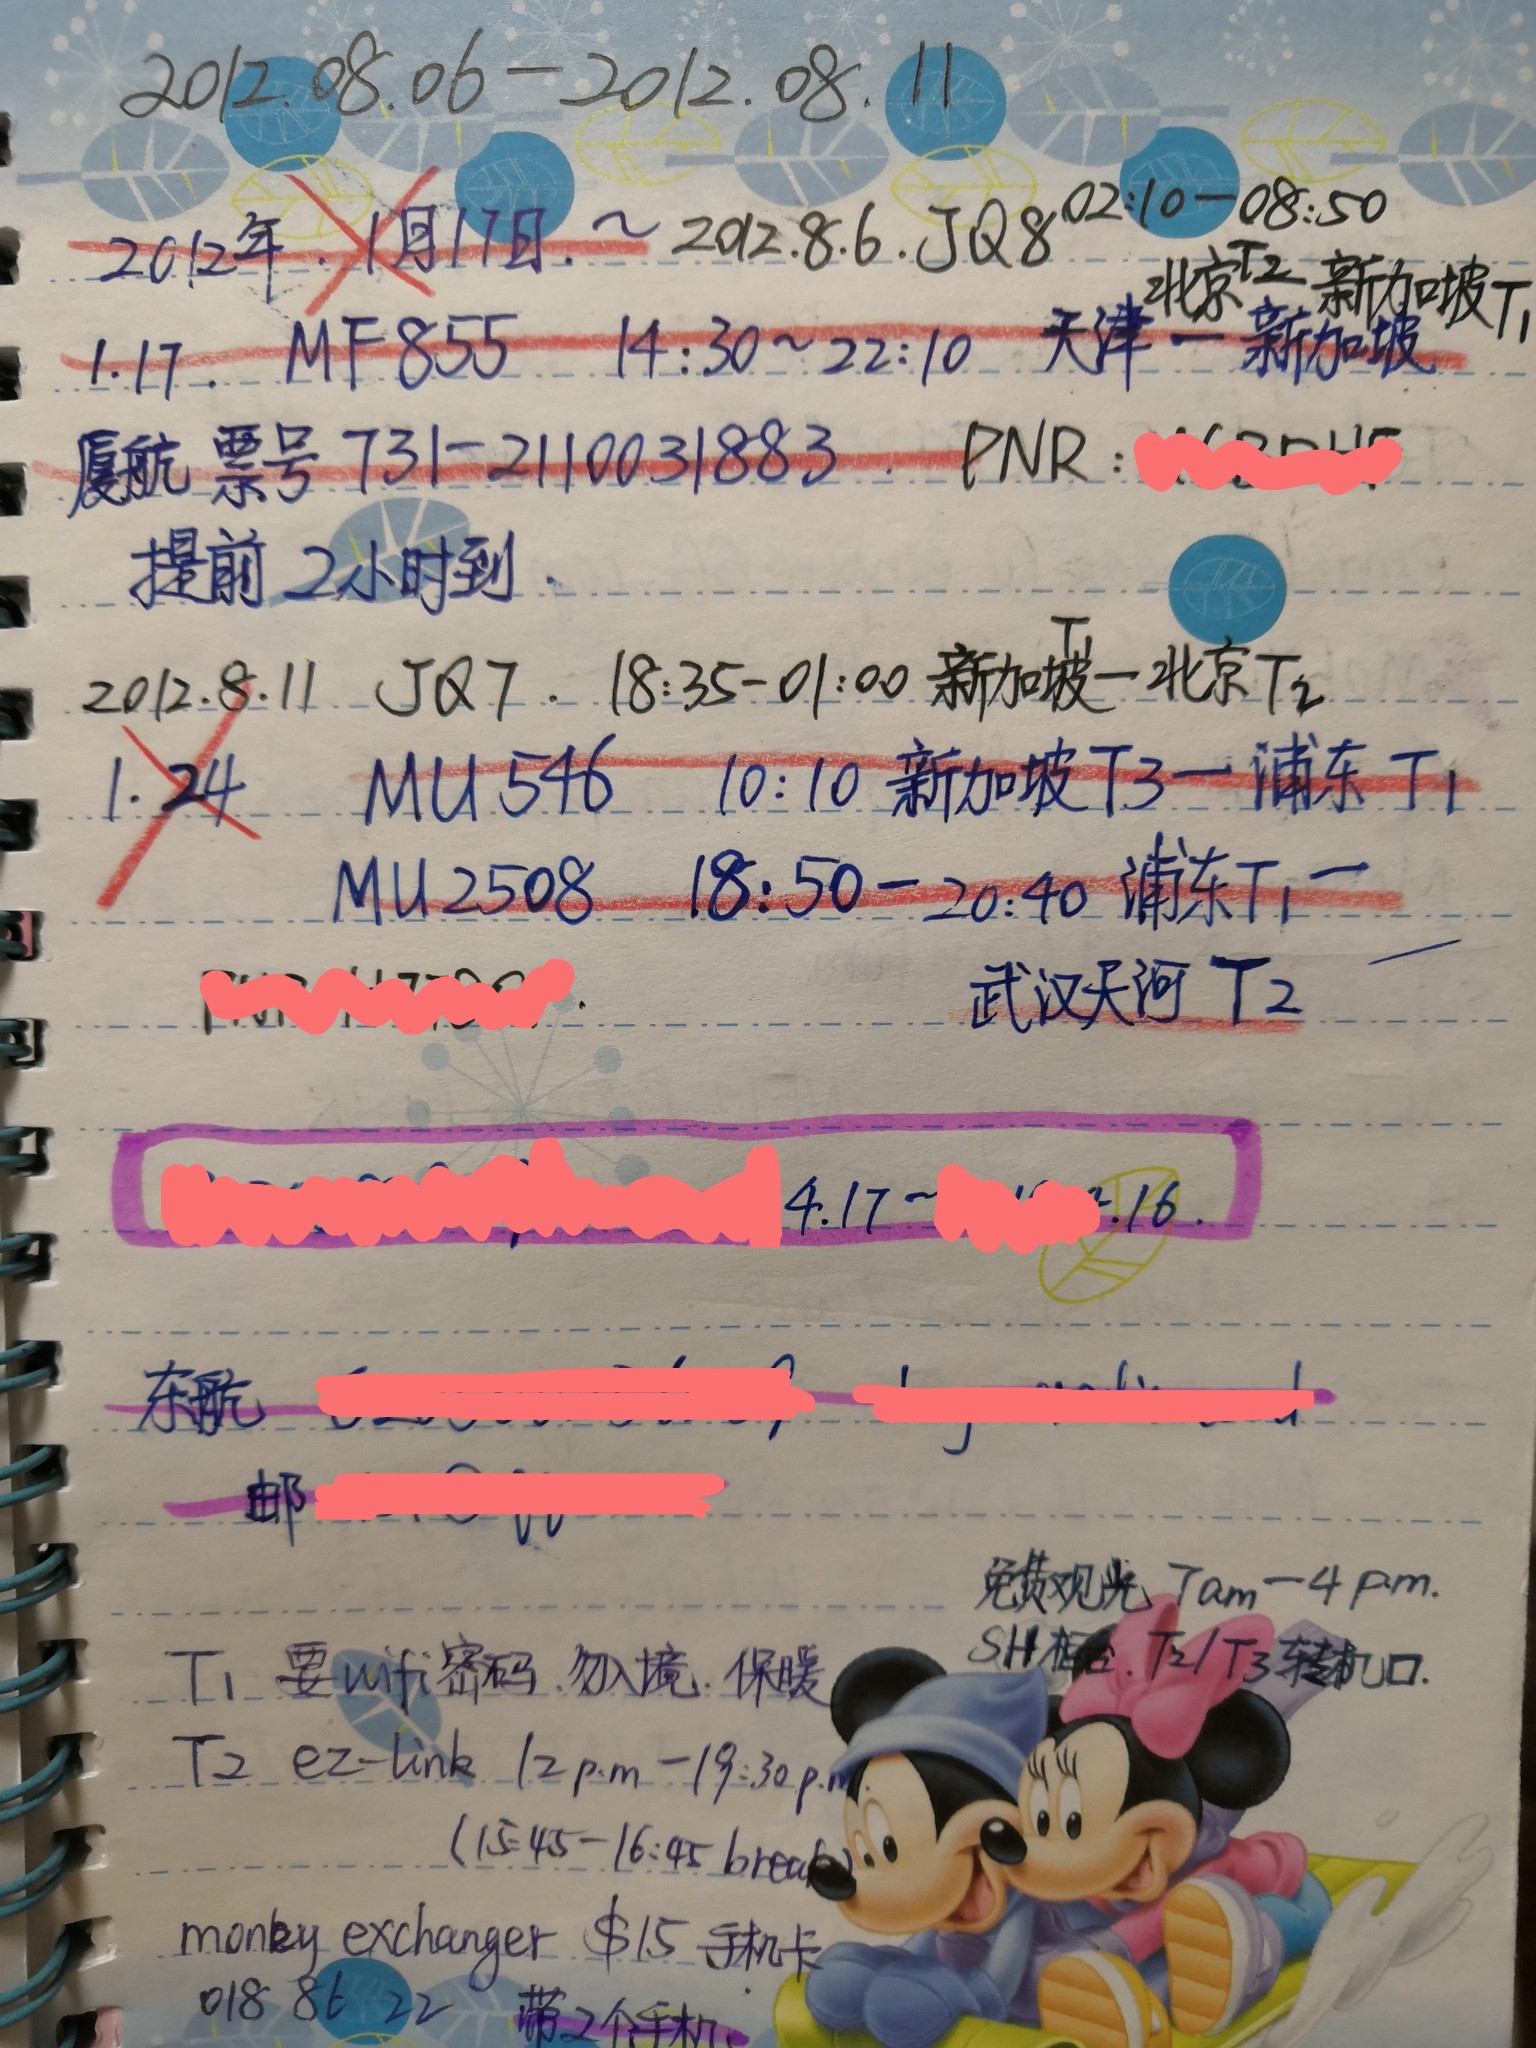 2012.08.06－2012.08.11
2012年.1月17日.～2012.8.6.JQ8 02:10－08:50
北京T2－新加坡T1
1.17. MF855 14:30～22:10 天津－新加坡
厦航 票号 731-2110031883. PNR:
提前 2小时到.
2012.8.11 JQ7. 18:35-01:00 新加坡T1－北京T2
1.24 MU546 10:10 新加坡T3－浦东T1
MU2508 18:50－20:40 浦东T1－
武汉天河 T2
4.17～ .16.
东航
邮
免费观光 7am－4p.m.
SH柜台. T2/T3转机口.
T1 要wifi密码.勿入境.保暖
T2 ez-link 12p.m－19:30p.m.
(15:45－16:45 break)
money exchanger $15 手机卡
018 86 22 带2个手机.